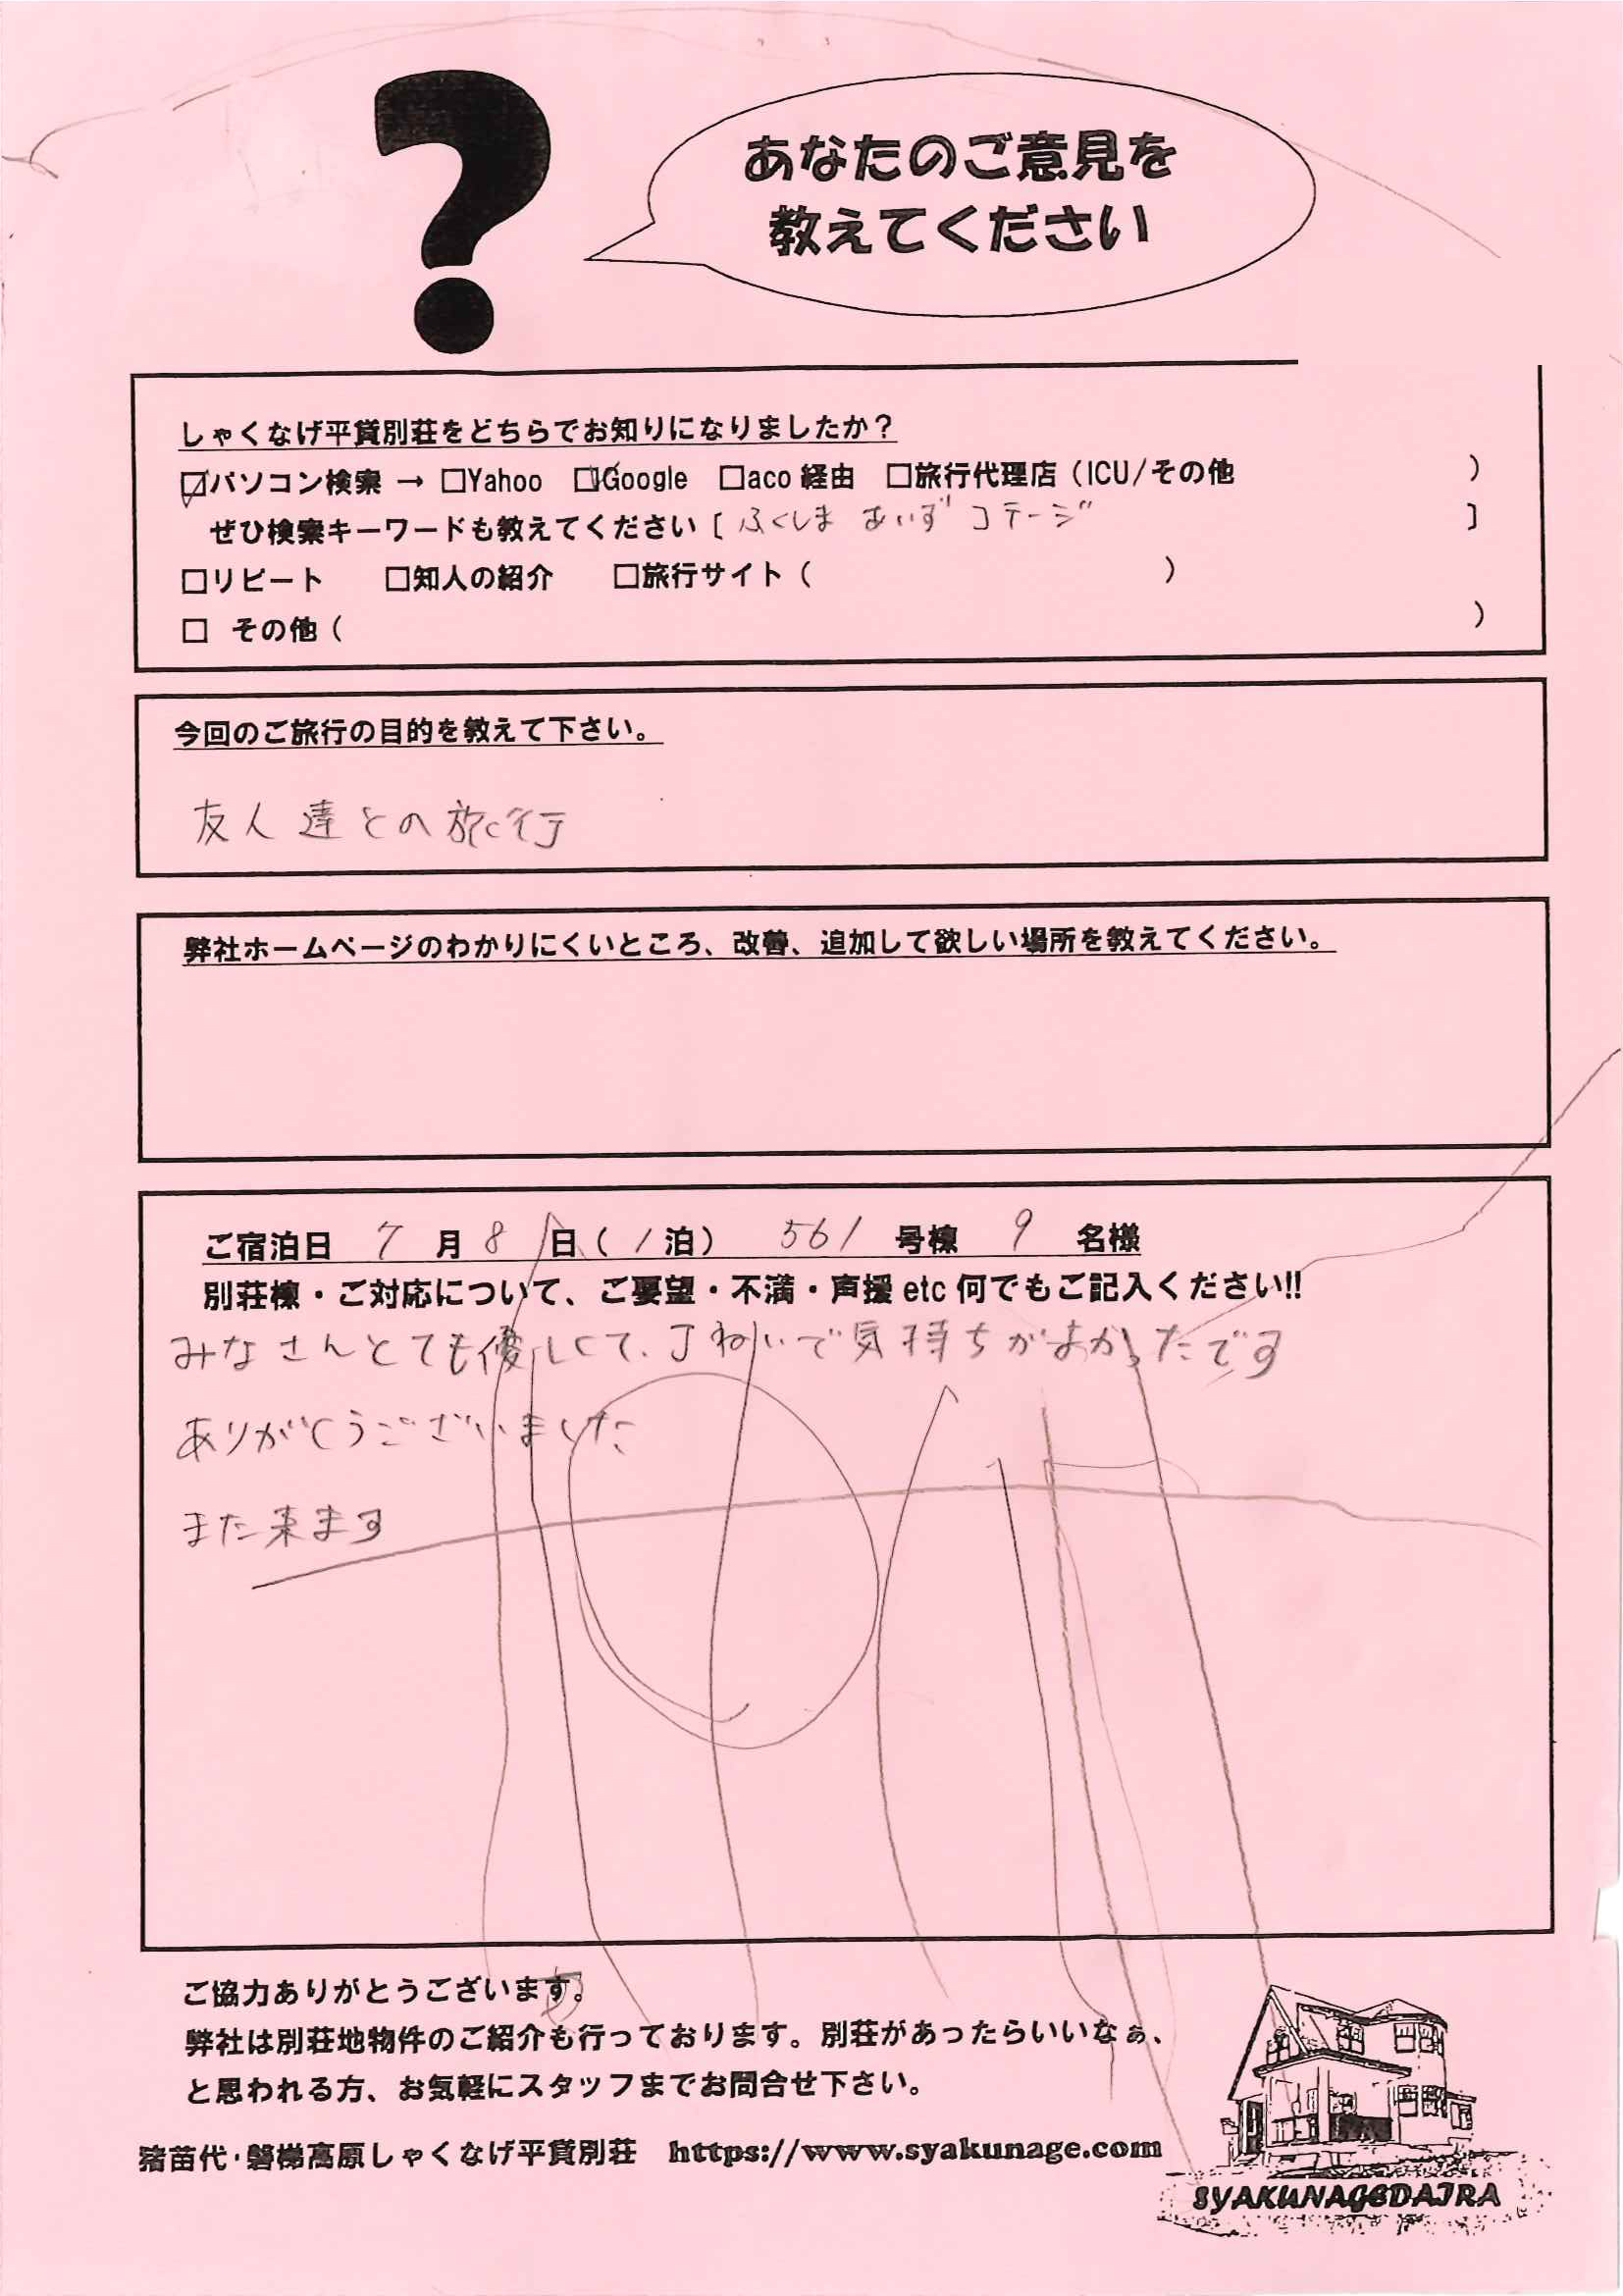 あなたのご意見を
教えてください
しゃくなげ平貸別荘をどちらでお知りになりましたか？
☑パソコン検索 → □Yahoo ☑Google □aco 経由 □旅行代理店（ICU/その他 ）
ぜひ検索キーワードも教えてください［ ふくしま あいず コテージ ］
□リピート □知人の紹介 □旅行サイト（ ）
□ その他（ ）
今回のご旅行の目的を教えて下さい。
友人達との旅行
弊社ホームページのわかりにくいところ、改善、追加して欲しい場所を教えてください。
ご宿泊日 7 月 8 日（ 1 泊） 561 号棟 9 名様
別荘棟・ご対応について、ご要望・不満・声援 etc 何でもご記入ください!!
みなさんとても優しくて、丁ねいで気持ちがよかったです
ありがとうございました
また来ます
ご協力ありがとうございます。
弊社は別荘地物件のご紹介も行っております。別荘があったらいいなぁ、
と思われる方、お気軽にスタッフまでお問合せ下さい。
猪苗代・磐梯高原しゃくなげ平貸別荘 https://www.syakunage.com
SYAKUNAGEDAIRA